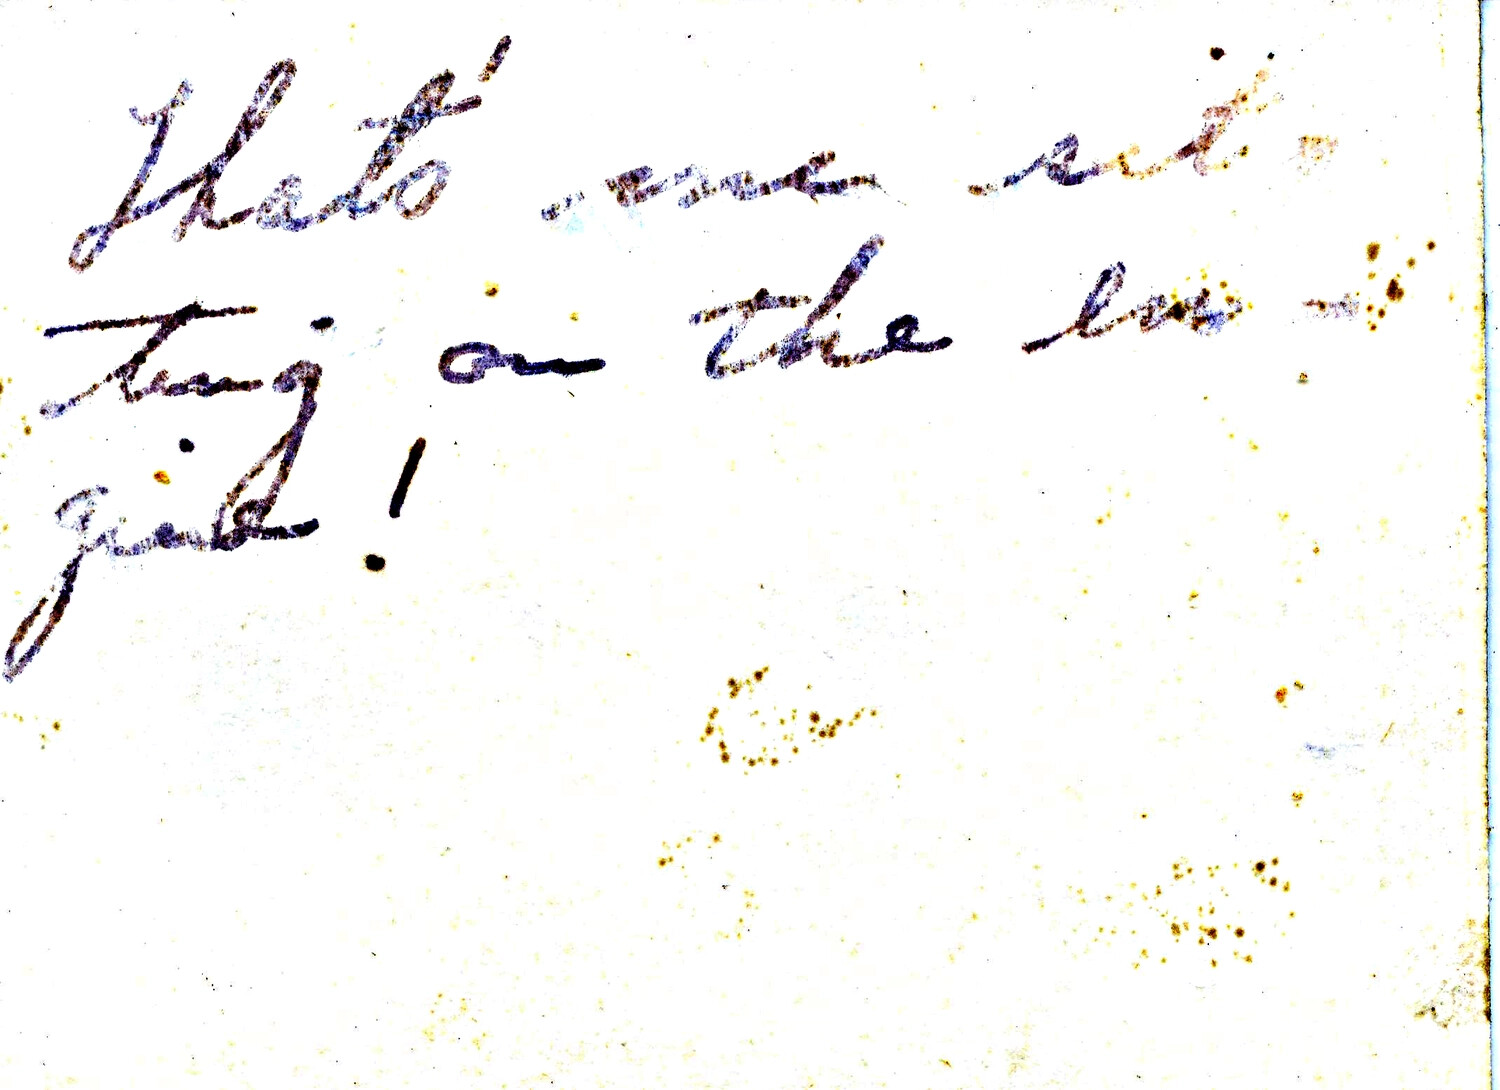 That's me sit-
ting on the en-
gine!